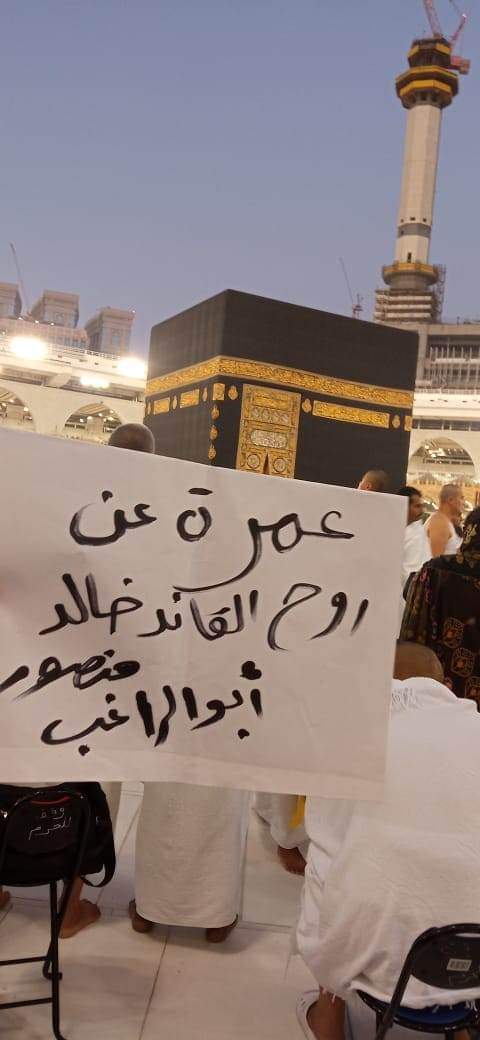 عمرة عن
روح القائد خالد
منصور
أبوالراغب
وقف
للحرم